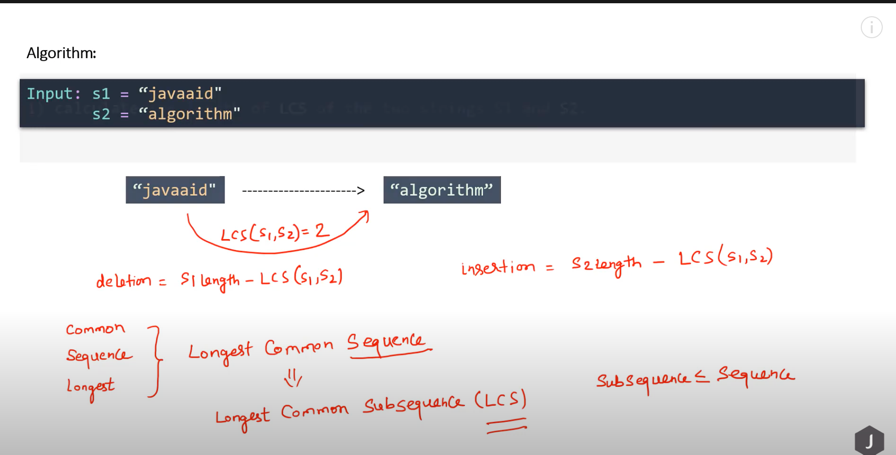 Algorithm:
Input: s1 = “javaaid"
s2 = “algorithm"
“javaaid" ----------------------> “algorithm”
LCS(S1,S2)= 2
deletion = S1 length - LCS(S1,S2)
insertion = S2 length - LCS(S1,S2)
Common
Sequence
Longest
Longest Common Sequence
Longest Common Subsequence (LCS)
Subsequence ≤ Sequence
J